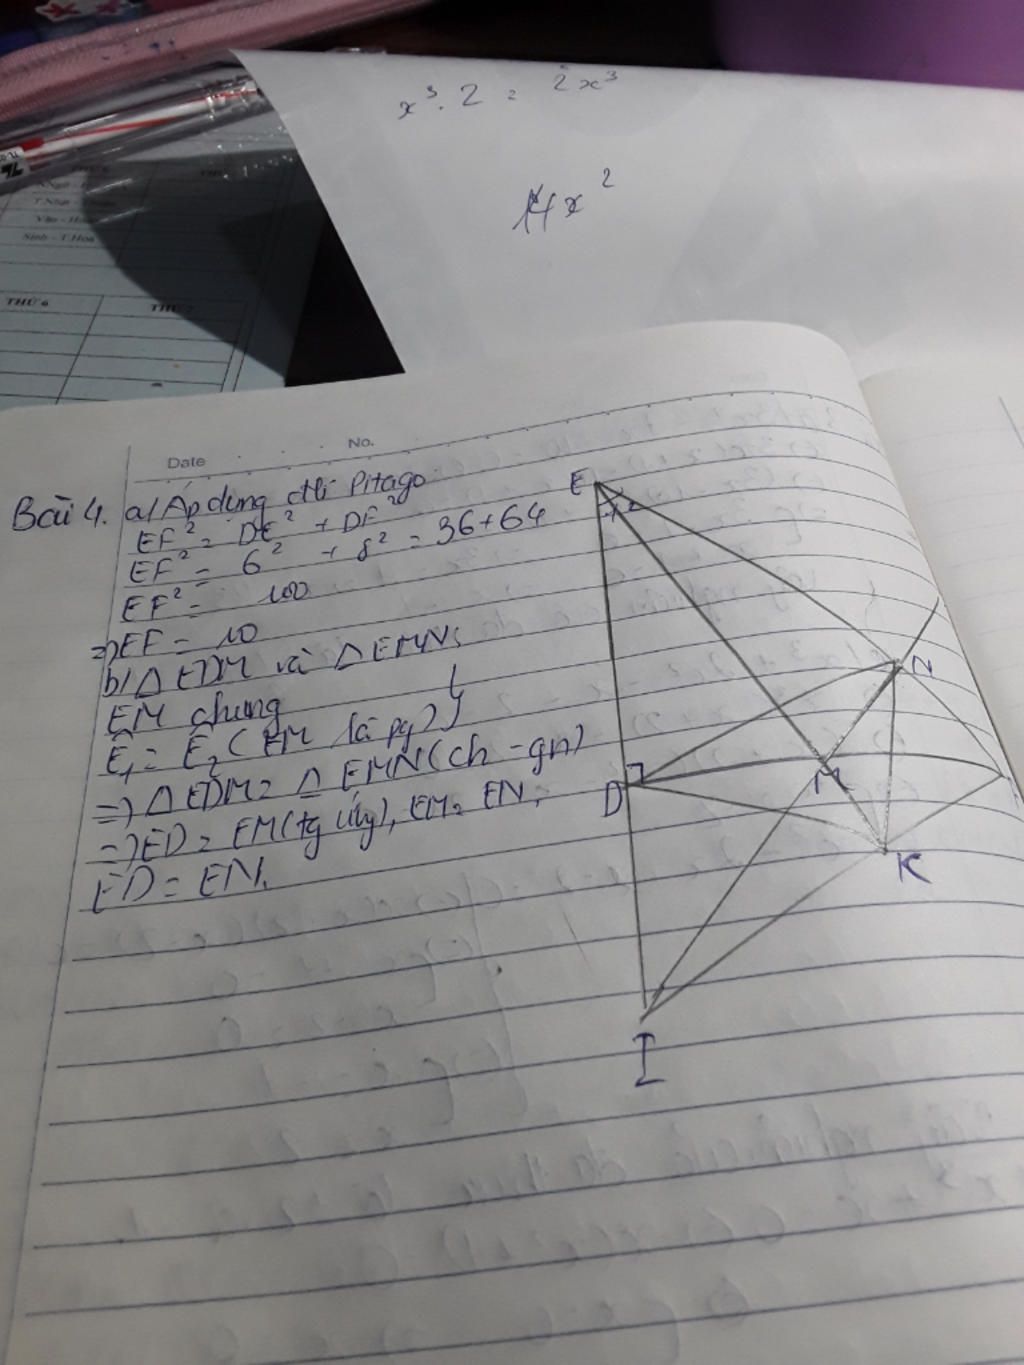 x³. 2 = 2x³
x²
THỨ 6
Sinh - T.Hoa
Date
No.
Bài 4. a/ Áp dụng đlí Pitago
EF² = DE² + DF²
EF² = 6² + 8² = 36+64
EF² = 100
=> EF = 10
b/ △ EDM và △ EMN:
EM chung
Ê₁ = Ê₂ ( EM là pg)
=> △ EDM = △ EMN (ch - gn)
=> ED = EM (tg ứng), EM = EN,
ED = EN.
E
1 2
N
D
M
K
I